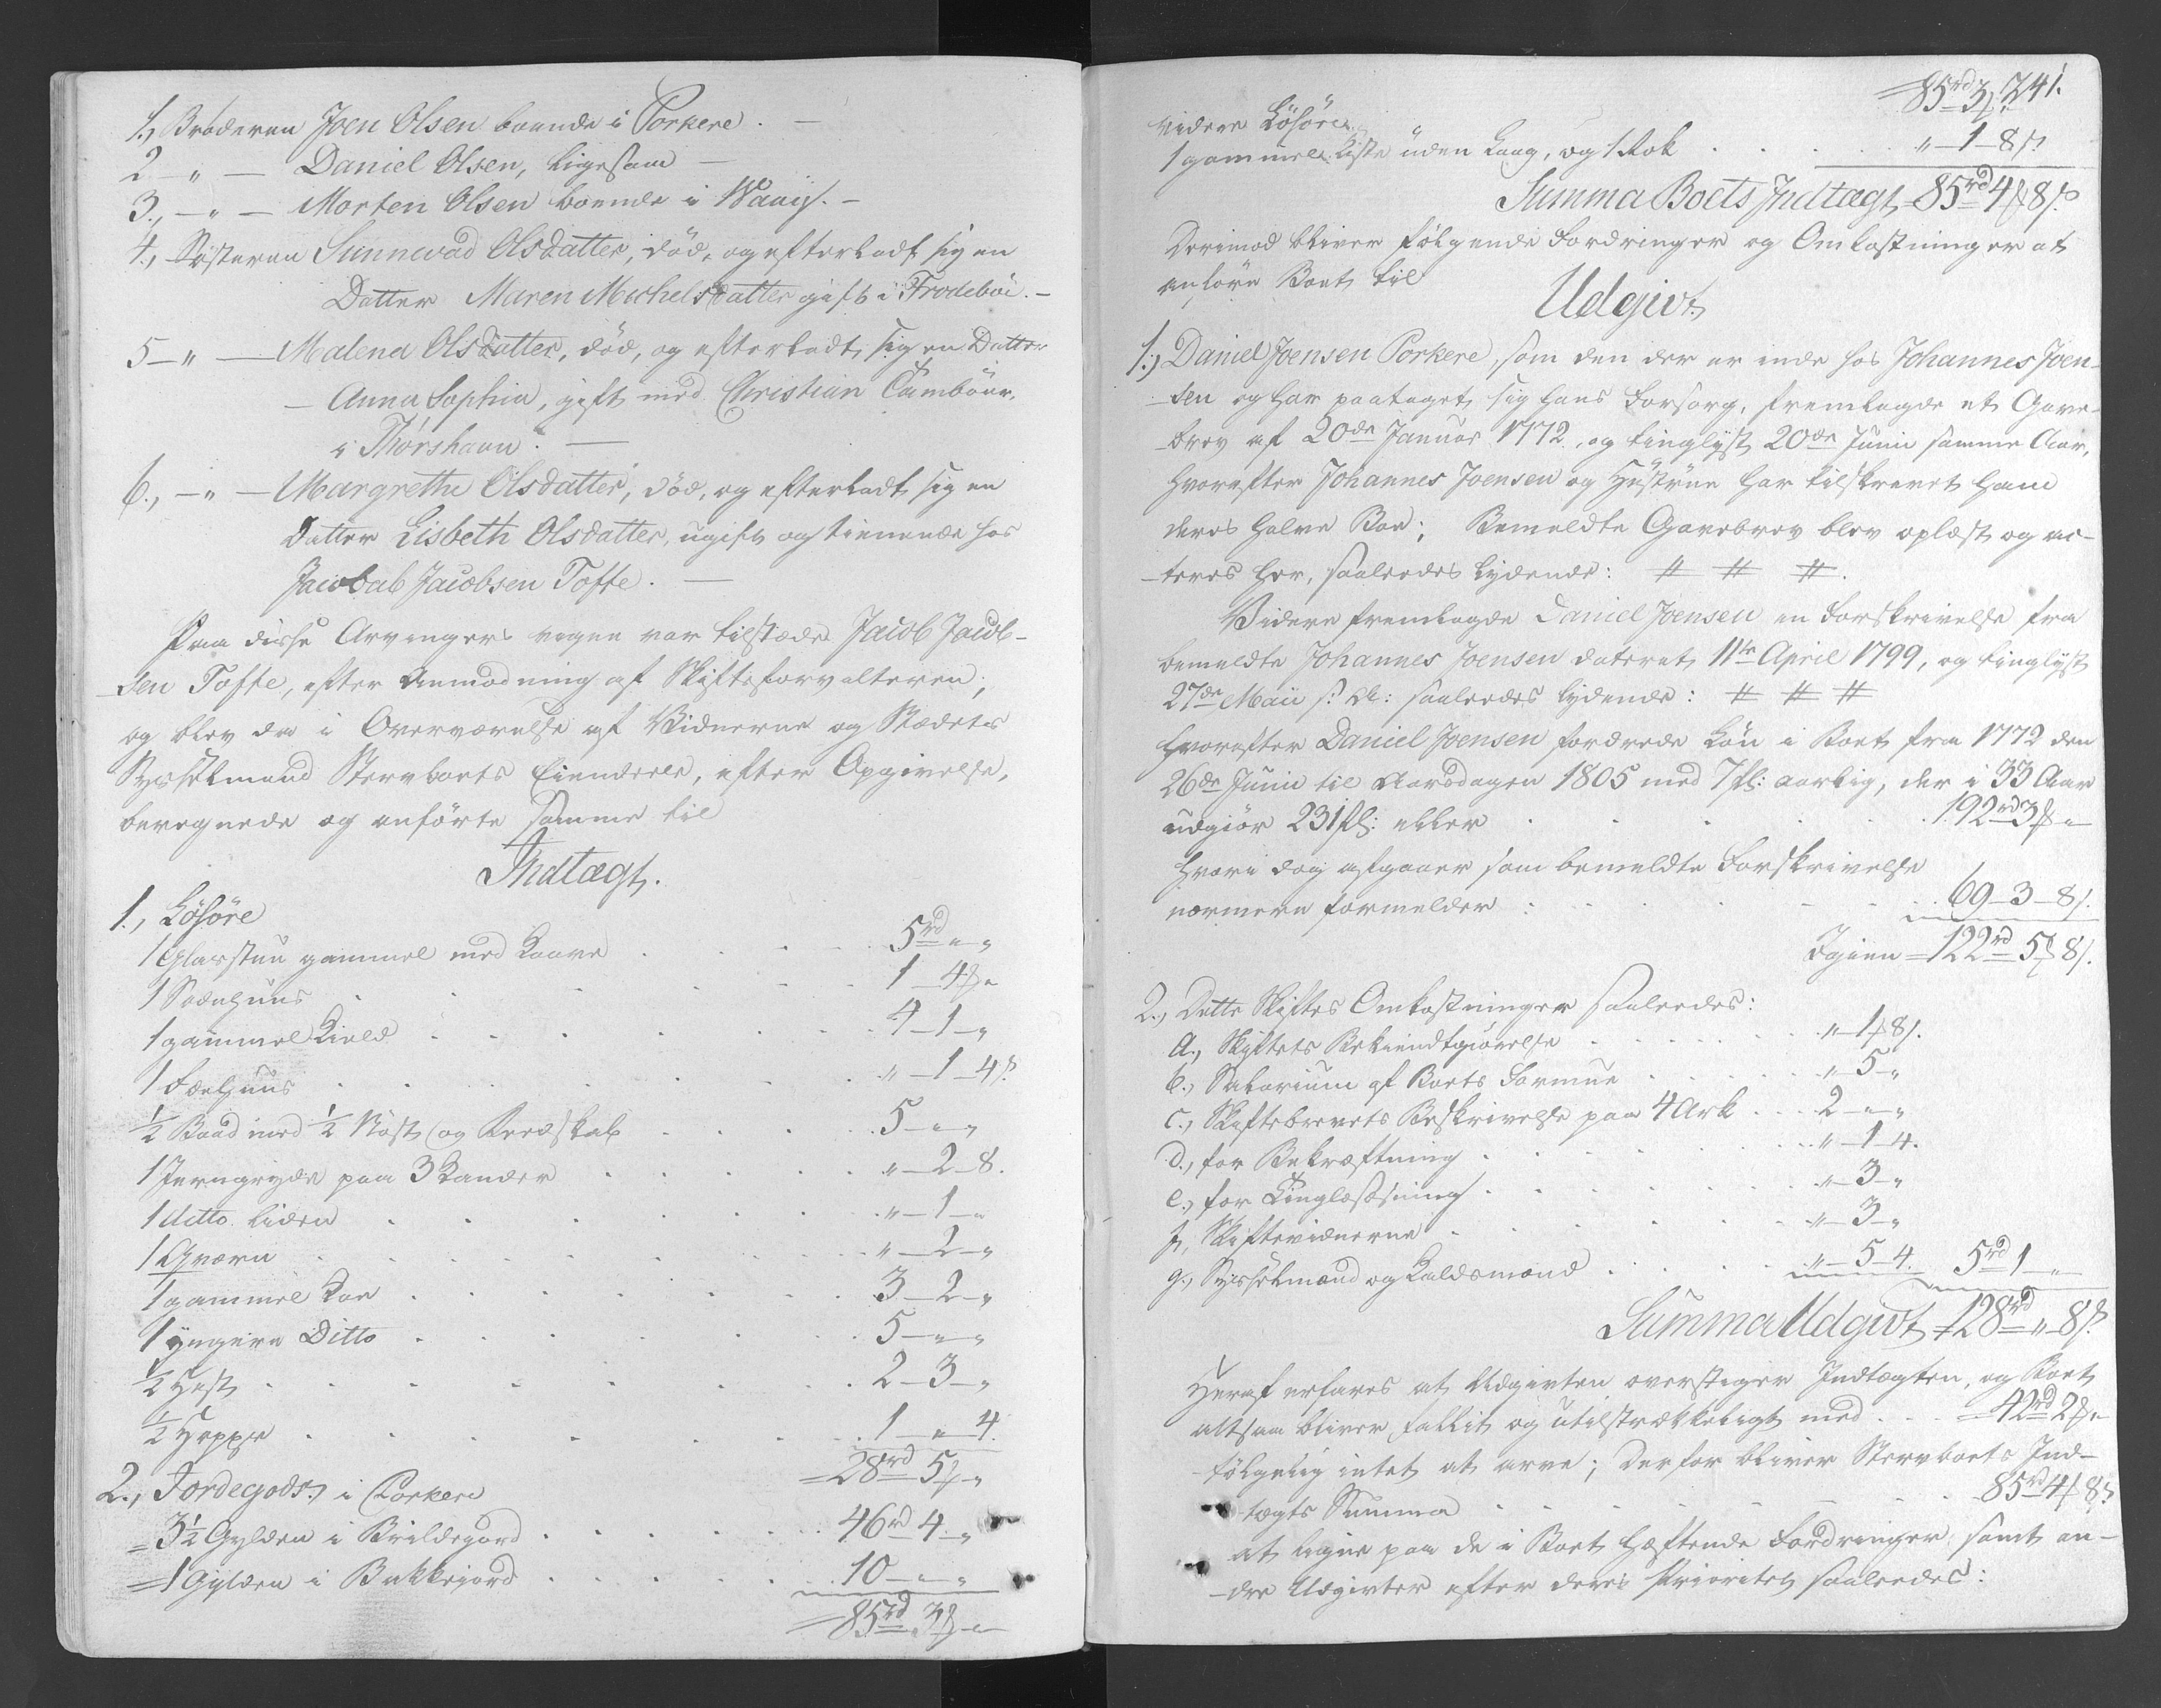 1., Broderen Joen Olsen boende i Porkere. —
2 — " — Daniel Olsen, ligesaa —
3., — " — Morten Olsen boende i Waaij. —
4., Søsteren Sunnevad Olsdatter, død, og efterladt sig en
Datter Maren Michelsdatter gift i Frodebøi. —
5 — " — Malena Olsdatter, død, og efterladt sig en Datter
— Anna Sophia, gift med Christian Tambour,
i Thorshavn. —
6., — " — Margrethe Olsdatter, død, og efterladt sig en
Datter Lisbeth Olsdatter, ugift og tienende hos
Jacob Jacobsen Tofte. —
Paa disse Arvingers vegne var tilstæde Jacob Jacob-
sen Tofte, efter Anmodning af Skifteforvalteren;
og blev da i Overværelse af Vidnerne og Stædets
Sysselmand Stervboets Eiendeele, efter Opgivelse,
beregnede og anførte samme til
Indtægt.
1., Løsøre
1 Glasstue gammel med Kaave . . . 5rd " "
1 . . . 1 — 4 ß "
1 gammel . . . 4 — 1 — "
1 Fæehuus . . . " — 1 — 4 ß
½ Baad med ½ Nøst og Reedskab . . . 5 — " — "
1 Jerngryde paa 3 Kander . . . " — 2 — 8.
1 ditto liden . . . " — 1 — "
1 Qværn . . . " — 2 — "
1 gammel Koe . . . 3 — 2 — "
1 yngere Ditto . . . 5 — " — "
½ Hest . . . 2 — 3 — "
½ Hoppe . . . 1 — " — 4.
= 28rd 5 ß "
2., Jordegods i Porkere
= 3½ Gylden i . . . 46rd 4. "
= 1 Gylden i Bakkegjord . . . 10 — " — "
= 85rd 3 ß "
241.
= 85rd 3 ß
Videre Løsøre
1 gammel Kiste uden Laag, og 1 Rok . . . " — 1 — 8 ß
Summa Boets Indtægt = 85rd 4 ß 8 ß
Derimod bliver følgende Fordringer og Omkostninger at
anføre Boet til
Udgivt.
1.) Daniel Joensen Porkere, som den der er inde hos Johannes Joen-
sen og har paataget sig hans Forsørg, fremlagde et Gave-
brev af 20de Januar 1772., og tinglyst 20de Junii samme Aar,
hvorefter Johannes Joensen og Hustrue har tilskrevet ham
deres halve Boe; Bemeldte Gavebrev blev oplæst og ac-
teres her, saaledes lydende: # # #.
Videre fremlagde Daniel Joensen en Forskrivelse fra
bemeldte Johannes Joensen dateret 11te April 1799, og tinglyst
27de Maii s: A: saaledes lydende: # # #
hvorefter Daniel Joensen fordrede Løn i Boet fra 1772 den
26de Junii til Aarsdagen 1805 med 7 fl: aarlig, der i 33 Aar
udgiør 231 fl: eller . . . 192rd 3 ß "
hvori dog afgaaer som bemeldte Forskrivelse
nærmere formelder : . . . 69 — 3 — 8 ß.
Igien = 122rd 5 ß 8 ß.
2., Dette Skiftes Omkostninger saaledes:
a., Skiftets Bekiendtgiørelse . . . " — 1 ß 8 ß.
b., Salarium af Boets Formue . . . " — 5 — "
c., Skiftebrevets Beskrivelse paa 4 Ark . . . 2 — " — "
d., for Bekræftning . . . " — 1 — 4.
e., for Tinglæsning . . . " — 3 — "
f., Skiftevidnerne . . . " — 3 — "
g., Sysselmand og Kaldsmand . . . " — 5 — 4. 5rd 1 — "
Summa Udgivt = 128rd " 8 ß
Heraf erfares at Udgivten overstiger Indtægten, og Boet
altsaa bliver fallit og utilstrækkeligt med . . . = 42rd 2 ß "
følgelig intet at arve; Derfor bliver Stervboets Ind-
tægts Summa . . . 85rd 4 ß 8 ß
at ligne paa de i Boet hæftende Fordringer samt an-
dre Udgivter efter deres Prioritet saaledes: